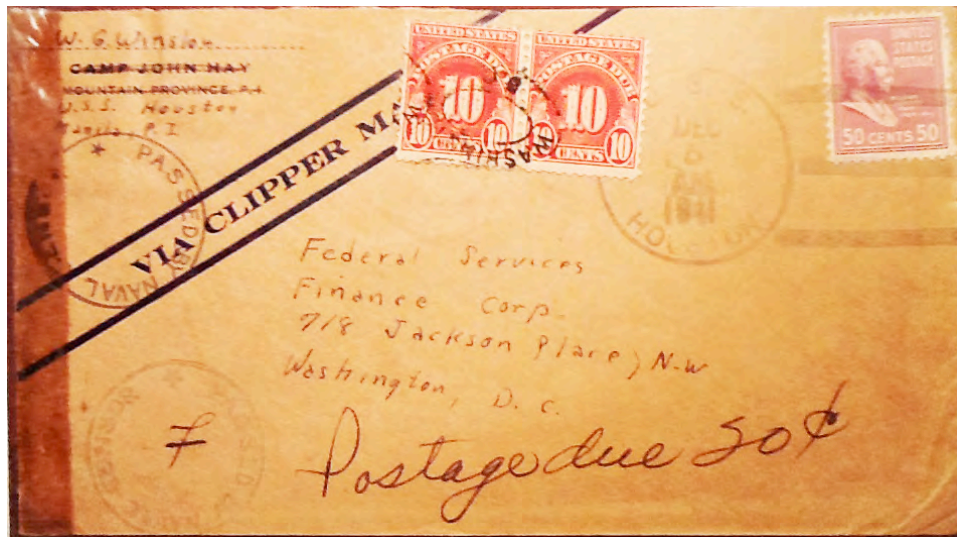 W. G. Winslow
CAMP JOHN HAY
MOUNTAIN PROVINCE, P.I.
U.S.S. Houston
Manila P. I
PASSED BY NAVAL
VIA CLIPPER
UNITED STATES
POSTAGE DUE
10
10 CENTS 10
UNITED STATES
POSTAGE DUE
10
CENTS 10
WASHIN
UNITED
STATES
POSTAGE
50 CENTS 50
DEC
AM
1941
HOUSTON
Federal Services
Finance Corp.
718 Jackson Place, N.W
Washington, D. C.
PASSED
CENSOR
7
Postage due 20¢